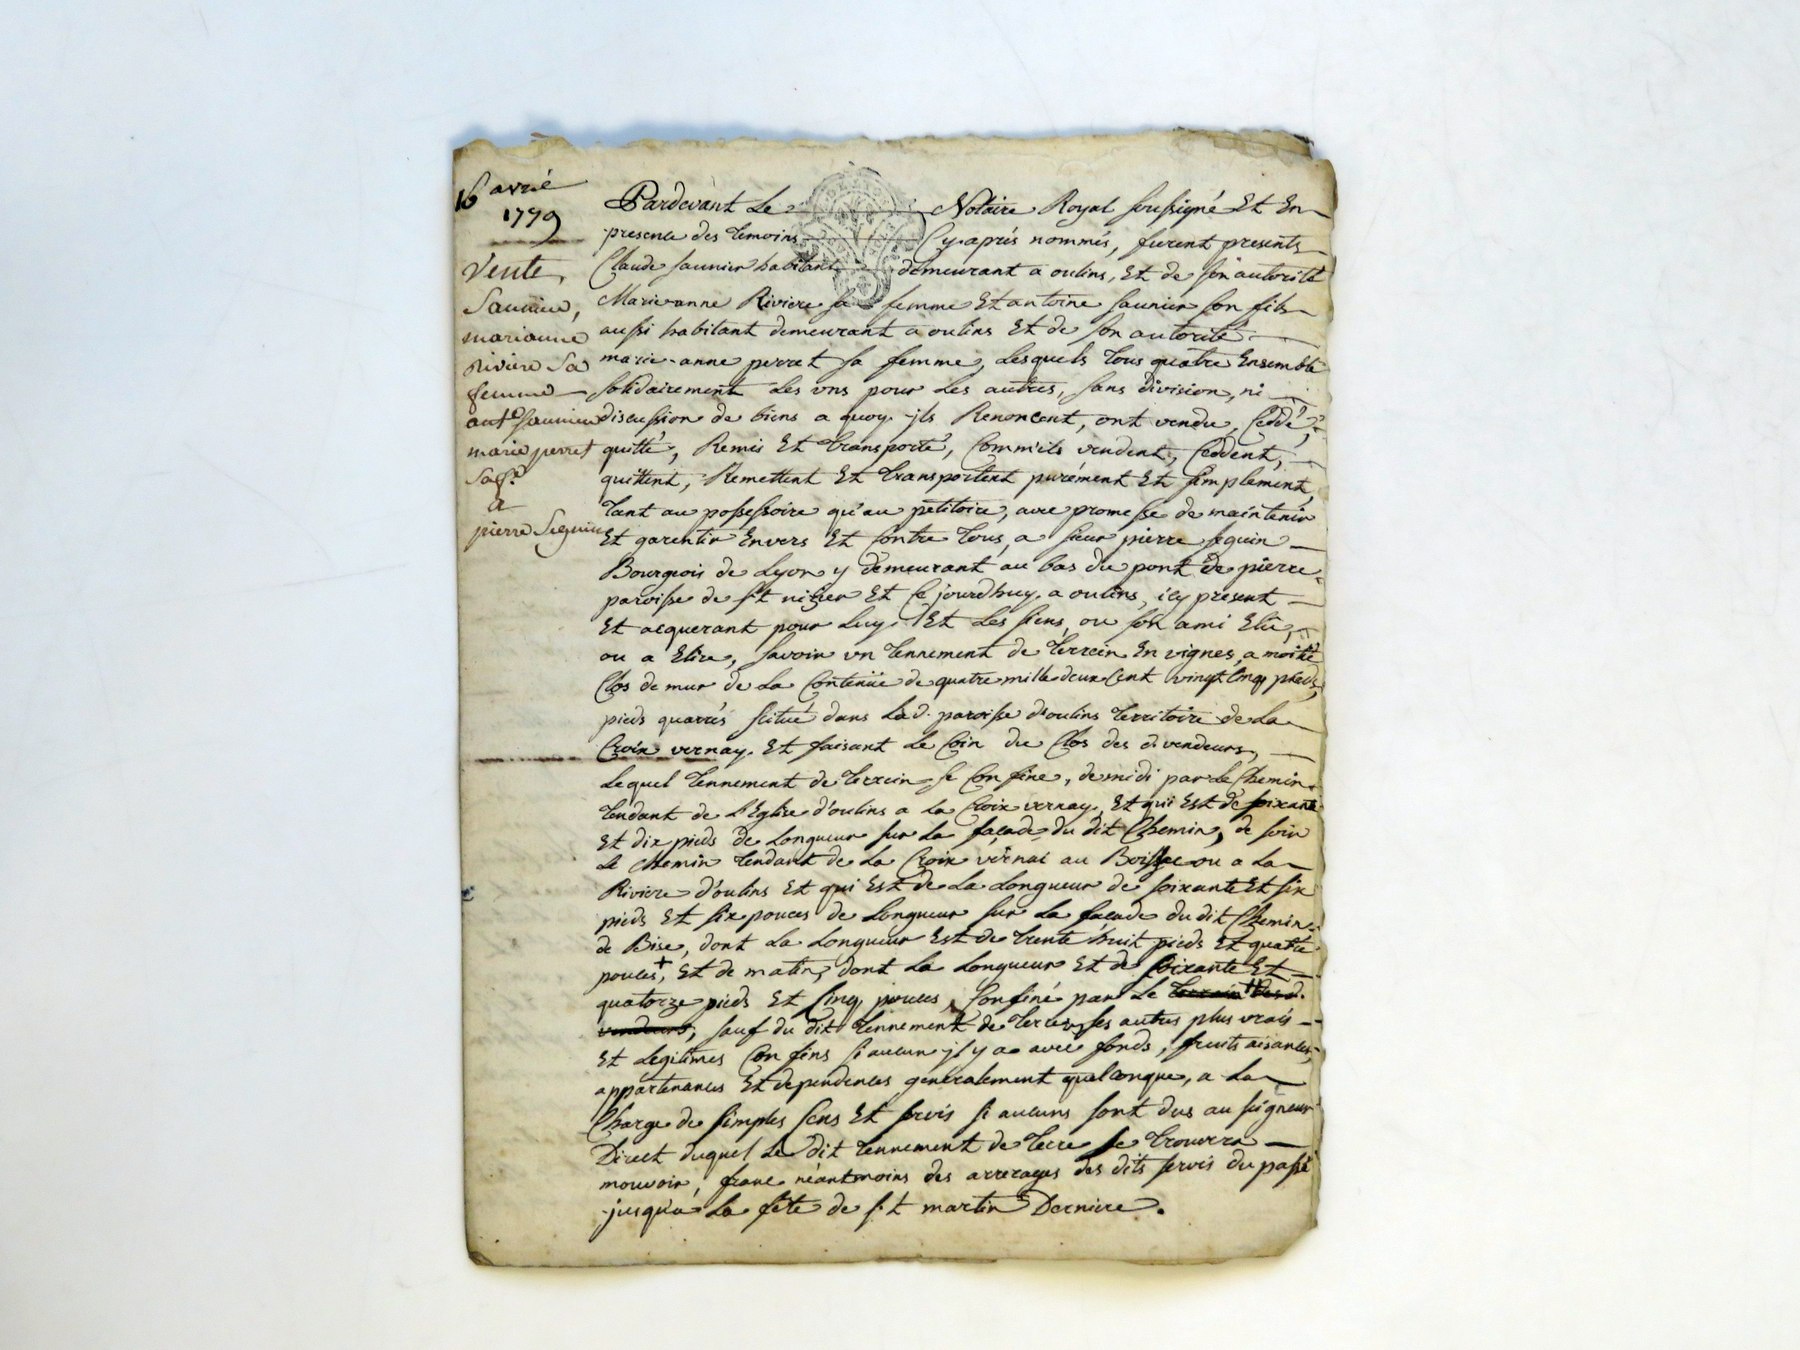 16 avril
1779
Vente,
Saunier,
marianne
Riviere sa
femme
ant.e Saunier
marie perret
sa f.e
a
pierre Seguin
Pardevant Le Notaire Royal soussigné Et En
presence des temoins Cy-aprés nommés, furent presents
Claude saunier habitant demeurant a oulins, Et de son autorité
Marie anne Riviere sa femme Et antoine saunier son fils
aussi habitant demeurant a oulins Et de son autorité
marie-anne perret sa femme, Lesquels tous quatre Ensemble
solidairement Les uns pour Les autres, sans division, ni
discussion de biens a quoy jls Renoncent, ont vendu, Ceddé,
quitté, Remis Et transporté, Comm'ils vendent, Ceddent,
quittent, Remettent Et transportent purément Et simplement,
tant au possessoire qu'au petitoire, avec promesse de maintenir
Et garentir Envers Et Contre tous, a sieur pierre seguin
Bourgeois de Lyon y demeurant au bas du pont de pierre
paroisse de s.t nizier Et Ce jourdhuy a oulins, icy présent
Et acquerant pour Luy Et Les siens, ou son ami Elû,
ou a Elire, savoir un tennement de terrein En vignes, a moitié
Clos de mur de La Contenüe de quatre mille deux Cent vingt Cinq pieds,
pieds quarrés scitué dans Lad. paroisse d'oulins territoire de La
Croix vernay. Et faisant Le Coin du Clos des d. vendeurs,
Lequel tennement de terrein se Confine, de midi par Le Chemin
tendant de L'Eglise d'oulins a La Croix vernay, Et qui Est de soixante
Et dix pieds de Longueur sur La façade du dit Chemin, de soir
Le chemin tendant de La Croix vernai au ou a La
Riviere d'oulins Et qui Est de La Longueur de soixante Et six
pieds Et six pouces de Longueur sur La façade du dit Chemin
de Bise, dont La Longueur Est de trente huit pieds Et quatre
pouces +, Et de matin, dont La Longueur Et de soixante Et
quatorze pieds Et Cinq pouces, Confiné par Le terrein desd.
vendeurs, sauf du dit tennement de terre ses autres plus vrais
Et Legitimes Confins si aucun jl y a avec fonds, fruits aisances,
appartenances Et dependences generalement quelconque, a La
Charge de simples Cens Et servis si aucuns sont dus au seigneur
Direct duquel Le dit tennement de terre se trouvera
mouvoir, franc néantmoins des arrerages des dits servis du passé
jusqu'a La fête de s.t martin Derniere.